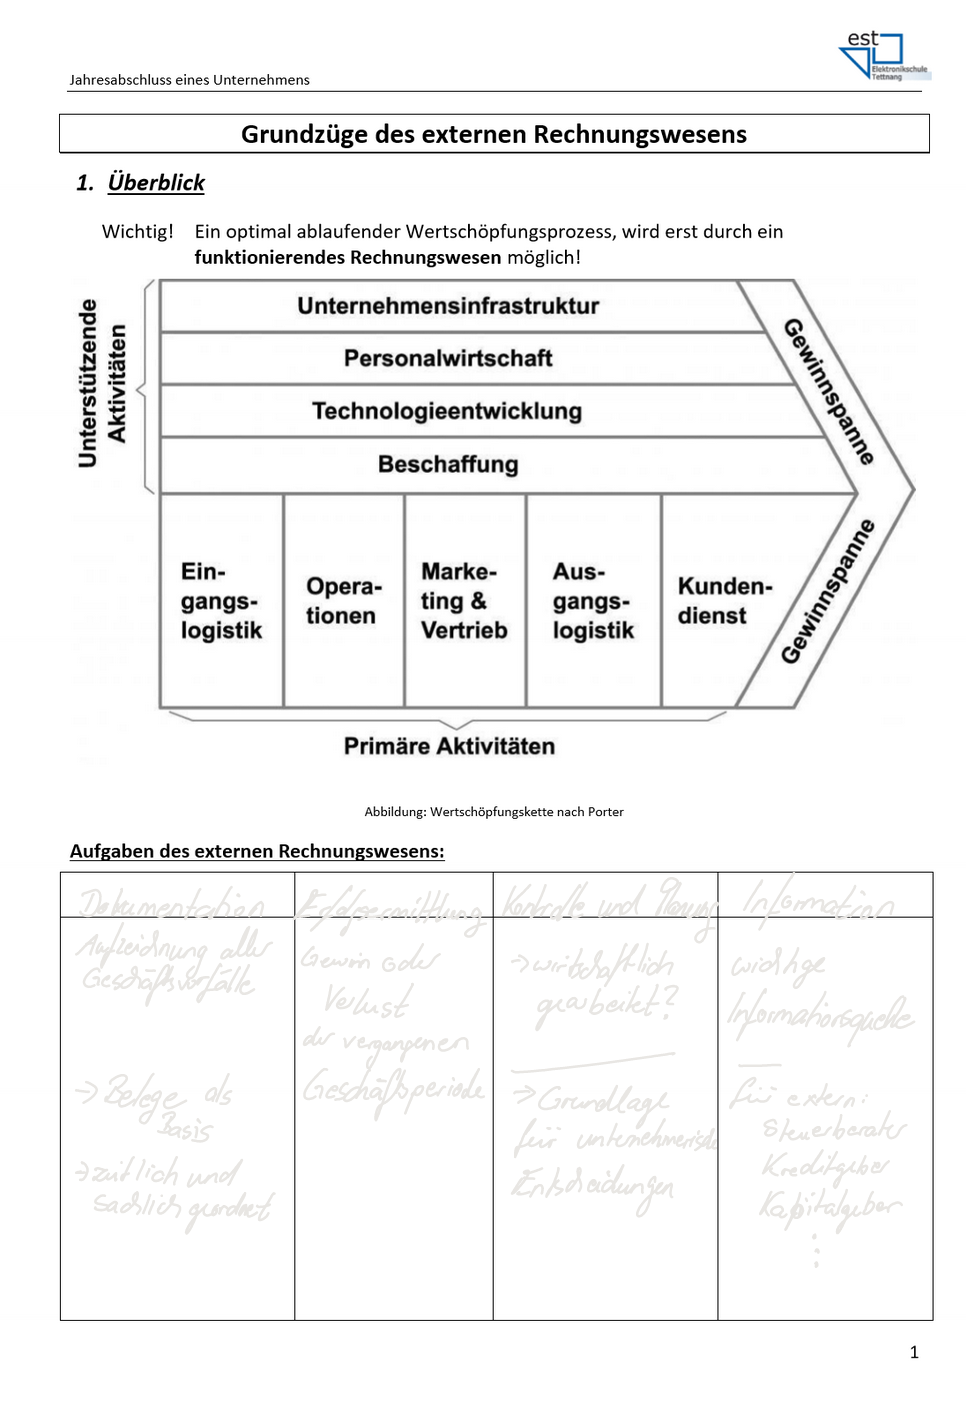 est
Elektronikschule
Tettnang
Jahresabschluss eines Unternehmens
Grundzüge des externen Rechnungswesens
1. Überblick
Wichtig! Ein optimal ablaufender Wertschöpfungsprozess, wird erst durch ein
funktionierendes Rechnungswesen möglich!
Unterstützende
Aktivitäten
Unternehmensinfrastruktur
Personalwirtschaft
Technologieentwicklung
Beschaffung
Gewinnspanne
Ein-
gangs-
logistik
Opera-
tionen
Marke-
ting &
Vertrieb
Aus-
gangs-
logistik
Kunden-
dienst
Gewinnspanne
Primäre Aktivitäten
Abbildung: Wertschöpfungskette nach Porter
Aufgaben des externen Rechnungswesens:
Dokumentation
Aufzeichnung aller
Geschäftsvorfälle
-> Belege als
Basis
-> zeitlich und
sachlich geordnet
Erfolgsermittlung
Gewinn oder
Verlust
der vergangenen
Geschäftsperiode
Kontrolle und Planung
-> wirtschaftlich
gearbeitet?
-> Grundlage
für unternehmerische
Entscheidungen
Information
wichtige
Informationsquelle
für extern:
Steuerberater
Kreditgeber
Kapitalgeber
⋮
1